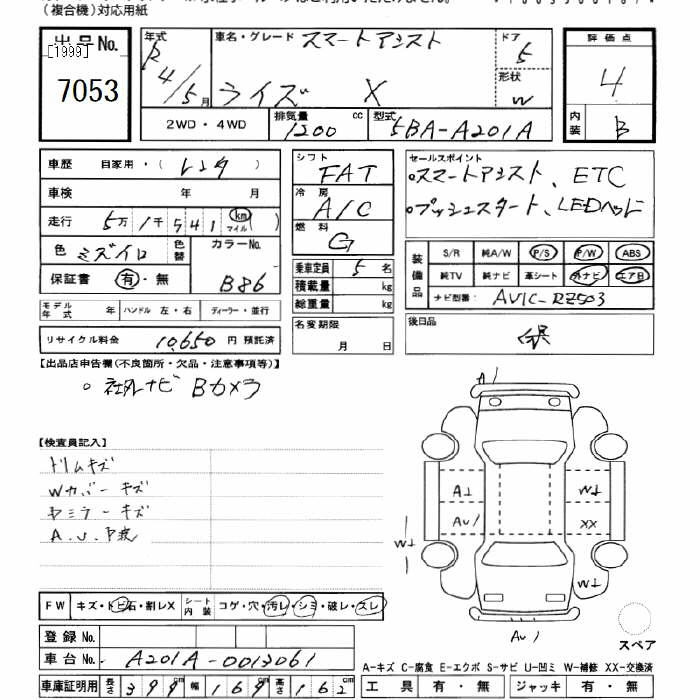 （複合機）対応用紙
出品No.
[1999]
7053
年式 R4/5月
車名・グレード スマートアシスト
ライズ X
ドア 5
形状 W
評価点
4
内装 B
2WD・4WD 排気量 1200 cc 型式 5BA-A201A
車歴 自家用・( レンタ )
車検 年 月
走行 5万1千541 km マイル ( )
色 ミズイロ 色替 カラーNo. B86
保証書 有・無
モデル年式 年 ハンドル 左・右 ディーラー・並行
リサイクル料金 10,650 円 預託済
シフト FAT
冷房 A/C
燃料 G
乗車定員 5 名
積載量 kg
総重量 kg
名変期限
月 日
セールスポイント
○スマートアシスト、ETC
○プッシュスタート、LEDヘッド
装備品 S/R 純A/W P/S P/W ABS
純TV 純ナビ 革シート 外ナビ エアB
ナビ型番： AVIC-RZ503
後日品
保
【出品店申告欄(不良箇所・欠品・注意事項等)】
○ 社外ナビ Bカメラ
【検査員記入】
ドリムキズ
Wカバーキズ
ドミラーキズ
A.U.P波
FW キズ・トビ石・割レX シート内装 コゲ・穴・汚レ・シミ・破レ・スレ
登録No.
車台No. A201A-0013061
車庫証明用 長さ 399 cm 幅 169 cm 高さ 162 cm
A1
A↓
W↓
AU1
XX
W↓
W↓
AU1
スペア
A-キズ C-腐食 E-エクボ S-サビ U-凹ミ W-補修 XX-交換済
工具 有・無 ジャッキ 有・無